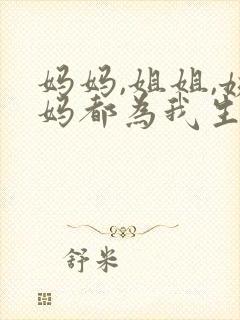 妈妈,姐姐,
妈都為我生
舒米